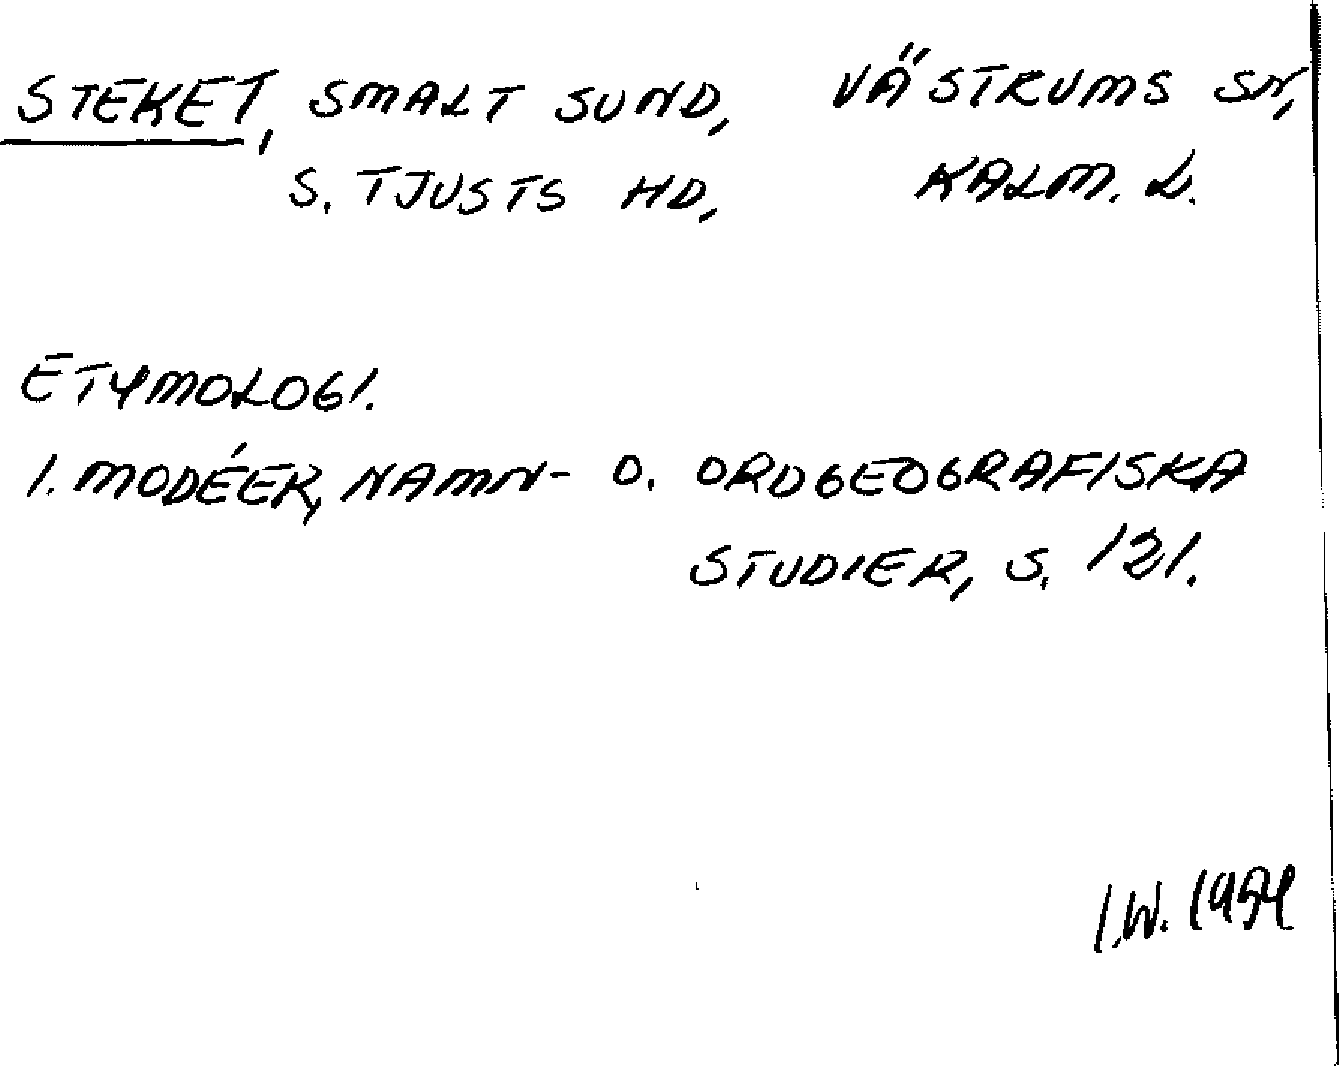 STEKET, SMALT SUND, VÄSTRUMS SN,
S. TJUSTS HD, KALM. L.
ETYMOLOGI.
I. MODÉER, NAMN- O. ORDGEOGRAFISKA
STUDIER, S. 121.
I.W.